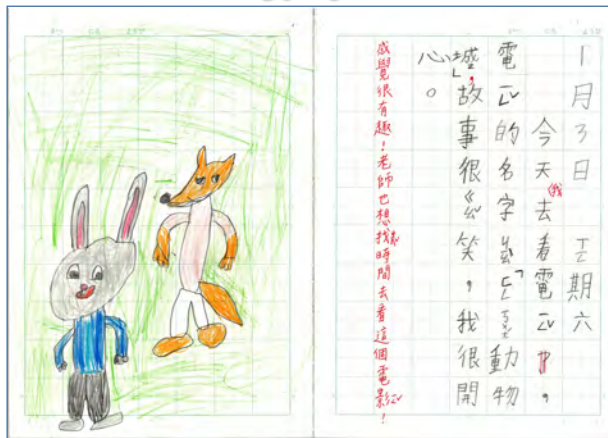 一月3日 ㄒㄧㄥ期六
今天我去看電ㄧㄥˇ,
電ㄧㄥˇ的名字ㄐㄧㄠˋ「ㄈㄥ ㄎㄨㄤˊ動物
城」,故事很ㄍㄠˇ笑,我很開
心。
感覺很有趣!老師也想找時間去看這個電影!